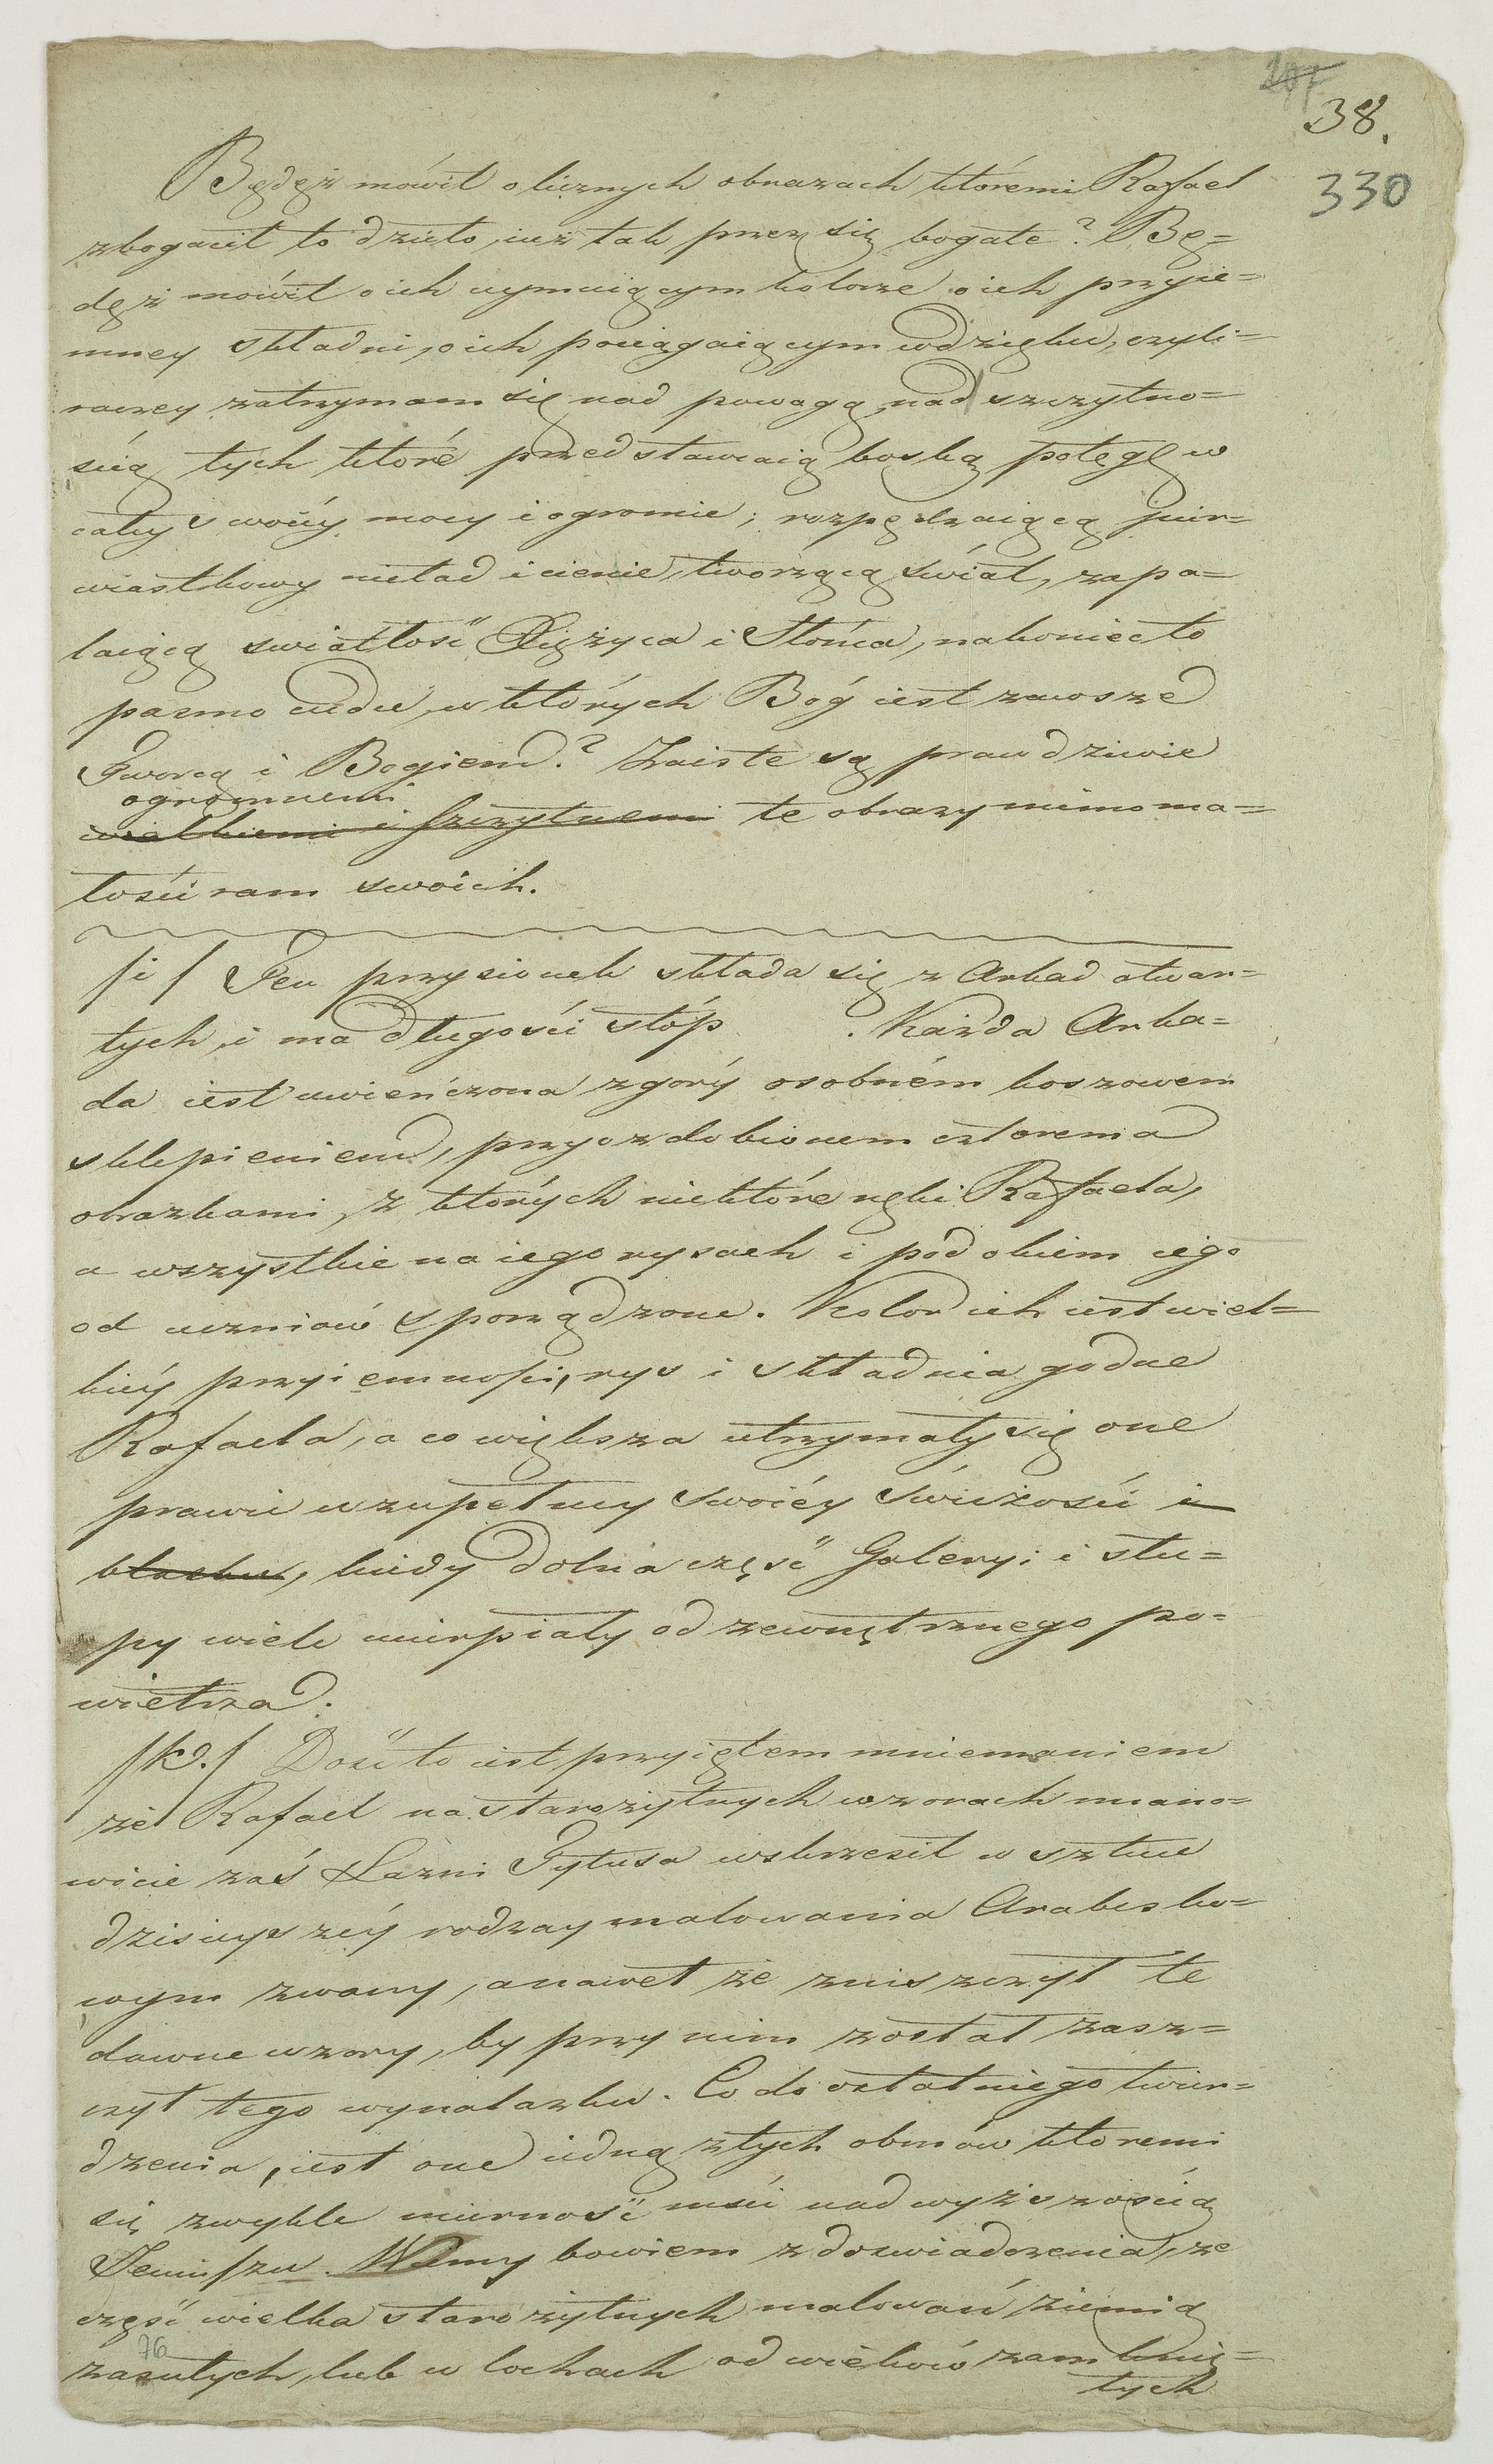 38.
330
Będęż mówił o licznych obrazach któremi Rafael
zbogacił to dzieło, iuż tak przez się bogate? Bę=
dęż mówił o ich uymuiącym kolorze o ich przyie=
mney składni, o ich pociągaiącym wdzięku, czyli=
raczey zatrzymam się nad powagą, nad szczytno=
ścią tych które przedstawiaią boską potęgę w
całey swoiéy mocy i ogromie; rozpędzaiącą pier=
wiastkowy nieład i cienie, tworzącą świat, zapa=
laiącą swiatłość Xiężyca i Słońca, nakoniec to
pasmo cudu, w których Bóg iest zawsze
Tworcą i Bogiem? Zaiste są prawdziwie
ogromnemi
wielkiemi i szczytnemi te obrazy mimo ma=
łości ram swoich.
/i/ Ten przysionek składa się z Arkad otwar=
tych, i ma długości stóp . Każda Arka=
da iest uwieńczona zgóry osobném koszowem
sklepieniem, przyozdobionem cztorema
obrazkami, z których niektóre ręki Rafaela,
a wszystkie na iego rysach i pod okiem iego
od uczniów sporządzone. Kolor ich iest wiel=
kiéy przyiemności, rys i składnia godne
Rafaela, a co większa utrzymały się one
prawie w zupełney swoiéy świeżości i
blasku, kiedy dolna część Galeryi i słu=
py wiele ucierpiały od zewnętrznego po=
wietrza.
/k./ Dość to iest przyiętem mniemaniem
że Rafael na starożytnych wzorach miano=
wicie zaś Łazni Tytusa wskrzesił w sztuce
dzisieyszéy rodzay malowania Arabesko=
wym zwany, a nawet że zniszczył te
dawne wzory, by przy nim został zasz=
czyt tego wynalazku. Co do ostatniego twier=
dzenia, iest one iedną z tych obmów któremi
się zwykle mierność mści nad wyższością
Jeniuszu. Wiemy bowiem z doswiadczenia, że
część wielka starożytnych malowań ziemią
76
zasutych, lub w lochach od wieków zamknię=
tych